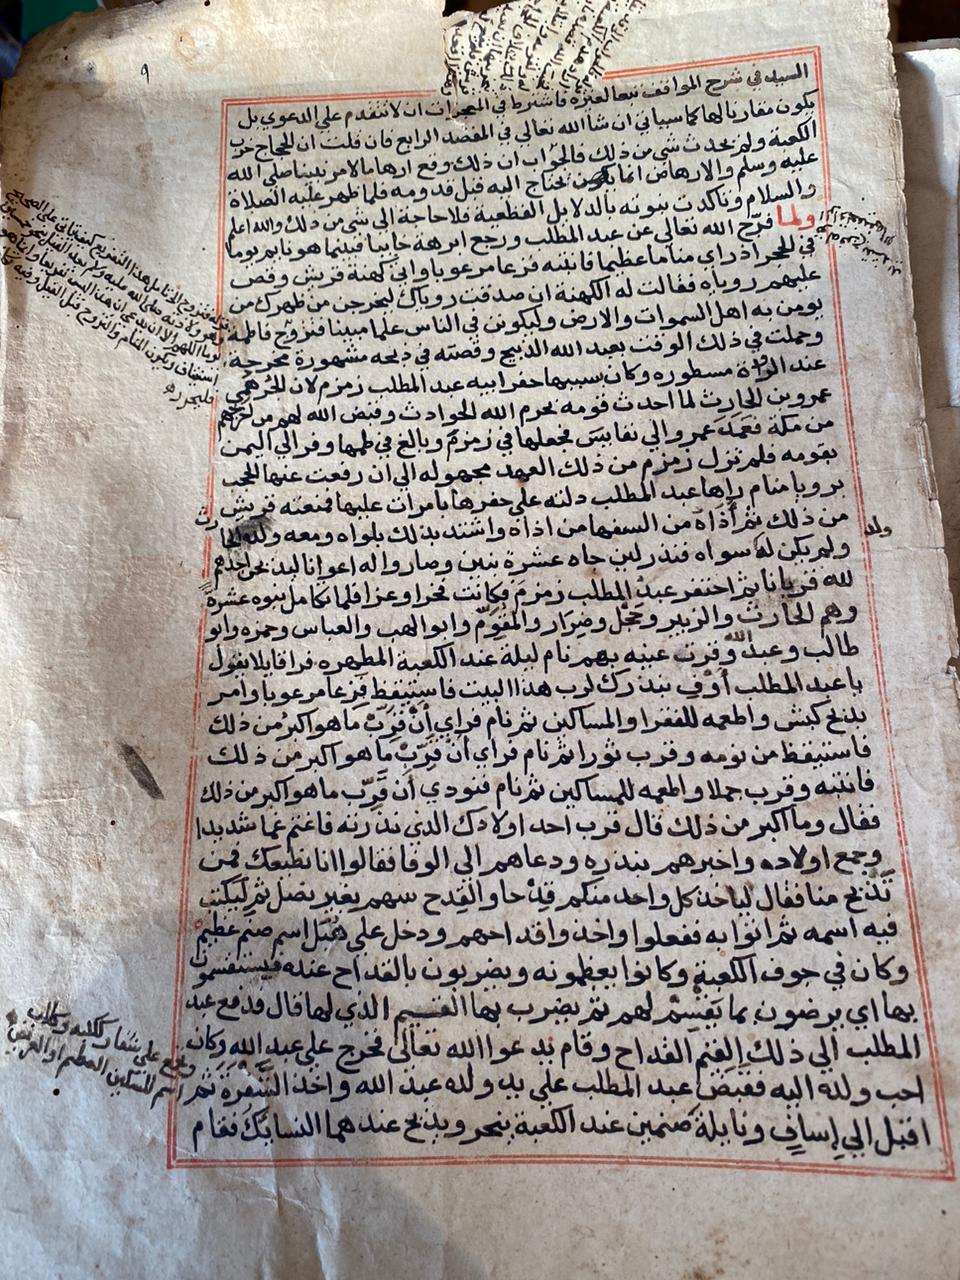 ٩
السيد في شرح المواقف تبعا لغيره فاشترط في المعجزات ان لا تتقدم على الدعوي بل
يكون مقارنا لها كما سياتي ان شا الله تعالى في المقصد الرابع فان قلت ان الحجاج خرب
الكعبة ولم يحدث شي من ذلك فالجواب ان ذلك وقع ارهاصا لامر نبينا صلى الله
عليه وسلم والارهاص انما يحتاج اليه قبل قدومه فلما ظهر عليه الصلاة
والسلام وتاكدت نبوته بالدلايل القطعية فلا حاجة الى شي من ذلك والله اعلم
ولما فرج الله تعالى عن عبد المطلب ورجع ابرهة خايبا فبينما هو نايم يوما
في الحجر اذ راي مناما عظيما فانتبه فزعا مرعوبا واتى كهنة قريش وقص
عليهم روياه فقالت له الكهنة ان صدقت روياك ليخرجن من ظهرك من
يومن به اهل السموات والارض وليكونن في الناس علما مبينا فتزوج فاطمة
وحملت في ذلك الوقت بعبد الله الذبيح وقصته في ذبحه مشهورة مخرجة
عند الرواة مسطوره وكان سببها حفر ابيه عبد المطلب زمزم لان الجرهمي
عمرو بن الحارث لما احدث قومه بحرم الله الحوادث وقيض الله لهم من اخرجهم
من مكة فعمد عمرو الى نفايس فجعلها في زمزم وبالغ في طمها وفر الى اليمن
بقومه فلم تزل زمزم من ذلك العهد مجهوله الى ان رفعت عنها الحجب
برويا منام راها عبد المطلب دلته على حفرها بامارات عليها فمنعته قريش
من ذلك ثم آذاه من السفها من اذاه واشتد بذلك بلواه ومعه ولده الحارث
ولم يكن له سواه فنذر لين جاه عشرة بنين وصاروا له اعوانا ليذبحن احدهم
لله قربانا ثم احتفر عبد المطلب زمزم فكانت فخرا وعزا فلما تكامل بنوه عشرة
وهم الحارث والزبير وحجل وضرار والمقوم وابو لهب والعباس وحمزه وابو
طالب وعبد الله وقرت عينه بهم نام ليلة عند الكعبة المطهره فراى قايلا يقول
يا عبد المطلب أوف بنذرك لرب هذا البيت فاستيقظ فزعا مرعوبا وامر
بذبح كبش واطعمه للفقرا والمساكين ثم نام فراي أن قرب ما هو اكبر من ذلك
فاستيقظ من نومه وقرب ثورا ثم نام فراي ان قرب ما هو اكبر من ذلك
فانتبه وقرب جملا واطعمه للمساكين ثم نام فنودي أن قرب ما هو اكبر من ذلك
فقال وما اكبر من ذلك قال قرب احد اولادك الذي نذرته فاغتم غما شديدا
وجمع اولاده واخبرهم بنذره ودعاهم الى الوفا فقالوا انا نطيعك فمن
تذبح منا فقال لياخذ كل واحد منكم قدحا والقدح سهم بغير نصل ثم ليكتب
فيه اسمه ثم اتوا به ففعلوا واخذ واقداحهم ودخل على هبل اسم صنم عظيم
وكان في جوف الكعبة وكانوا يعظمونه ويضربون بالقداح عنده فيستقسمون
بها اي يرضون بما يقسم لهم ثم يضرب بها القيم الذي لها قال فدفع عبد
المطلب الى ذلك القيم القداح وقام يدعوا الله تعالى فخرج على عبد الله وكان
احب ولده اليه فقبض عبد المطلب على يد ولده عبد الله واخذ الشفرة ثم
اقبل الى إساف ونايلة صنمين عند الكعبة ينحر ويذبح عندهما النسايك فقام